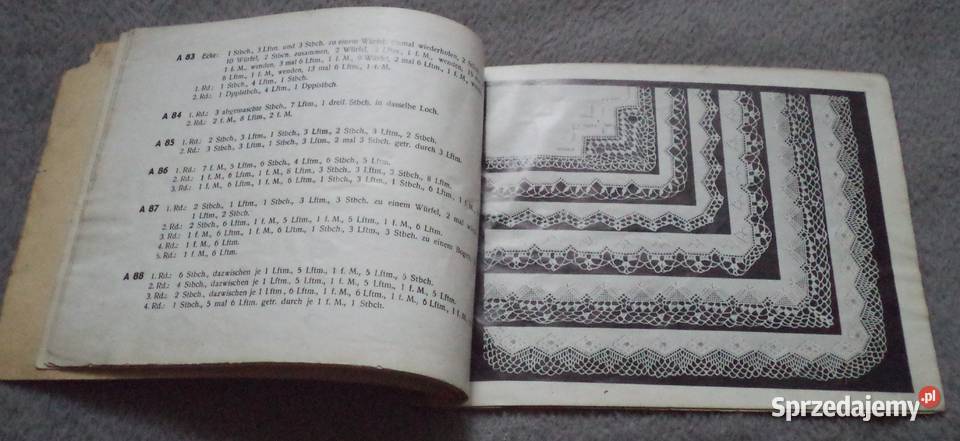 A 83 Ecke: 1 Stbch., 3 Lftm. und 3 Stbch. zu einem Würfel, einmal wiederholen, 2
10 Würfel, 2 Stbch. zusammen, 2 Würfel, 1 f. M., wenden,
1 f. M., wenden, 3 mal 6 Lftm., 1 f. M., 9 Würfel, 2 mal 6 Lftm., 1 f. M.,
6 Lftm., 1 f. M., wenden, 13 mal 6 Lftm., 1 f. M.
1. Rd.: 1 Stbch., 4 Lftm., 1 Stbch.
2. Rd.: 1 Dpplstbch., 4 Lftm., 1 Dpplstbch.
A 84 1. Rd.: 3 abgemaschte Stbch., 7 Lftm., 1 dreif. Stbch. in dasselbe Loch.
2. Rd.: 2 f. M., 8 Lftm., 2 f. M.
A 85 1. Rd.: 2 Stbch., 3 Lftm., 1 Stbch., 3 Lftm., 2 Stbch., 3 Lftm., 2 Stbch.
2. Rd.: 3 Stbch., 3 Lftm., 1 Stbch., 3 Lftm., 2 mal 3 Stbch. getr. durch 3 Lftm.
A 86 1. Rd.: 7 f. M., 5 Lftm., 6 Stbch., 4 Lftm., 6 Stbch., 5 Lftm.
2. Rd.: 1 f. M., 6 Lftm., 1 f. M., 8 Lftm., 3 Stbch., 3 Lftm., 3 Stbch., 8 Lftm.
3. Rd.: 1 f. M., 6 Lftm., 1 f. M., 6 Lftm., 1 Stbch., 3 Lftm., 1 Stbch., 6 Lftm., 1 f. M.
A 87 1. Rd.: 2 Stbch., 1 Lftm., 1 Stbch., 3 Lftm., 3 Stbch. zu einem Würfel, 2 mal
1 Lftm., 2 Stbch.
2. Rd.: 2 Stbch., 6 Lftm., 1 f. M., 5 Lftm., 1 f. M., 5 Lftm., 1 f. M., 6 Lftm.
3. Rd.: 1 f. M., 6 Lftm., 1 f. M., 6 Lftm., 1 Stbch., 3 Lftm., 3 Stbch. zu einem Bogen,
4. Rd.: 1 f. M., 6 Lftm.
5. Rd.: 1 f. M., 6 Lftm.
A 88 1. Rd.: 6 Stbch., dazwischen je 1 Lftm., 5 Lftm., 1 f. M., 5 Lftm., 5 Stbch.
2. Rd.: 4 Stbch., dazwischen je 1 Lftm., 5 Lftm., 1 f. M., 5 Lftm., 1 f. M., 5 Lftm.
3. Rd.: 2 Stbch., dazwischen je 1 Lftm., 6 Lftm., 1 f. M., 6 Lftm., 1 f. M., 6 Lftm., 1 f. M.
4. Rd.: 1 Stbch., 5 mal 6 Lftm. getr. durch je 1 f. M., 1 Stbch.
Sprzedajemy.pl